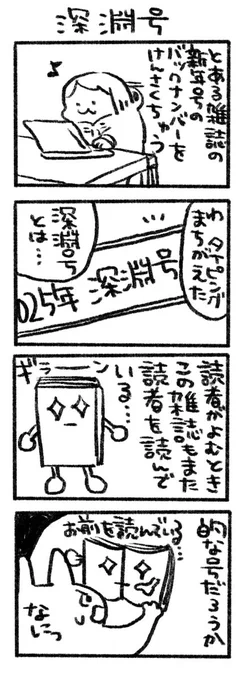 深淵号
とある雑誌の
新年号の
バックナンバーを
けんさくちゃう
♪
わ タイピング
まちがえた
…
深淵号
とは…
025年 深淵号
読者がよむとき
この雑誌もまた
読者を読んで
いる…
ギラーン
的な号だろうか
お前を読んでいる…
なにっ